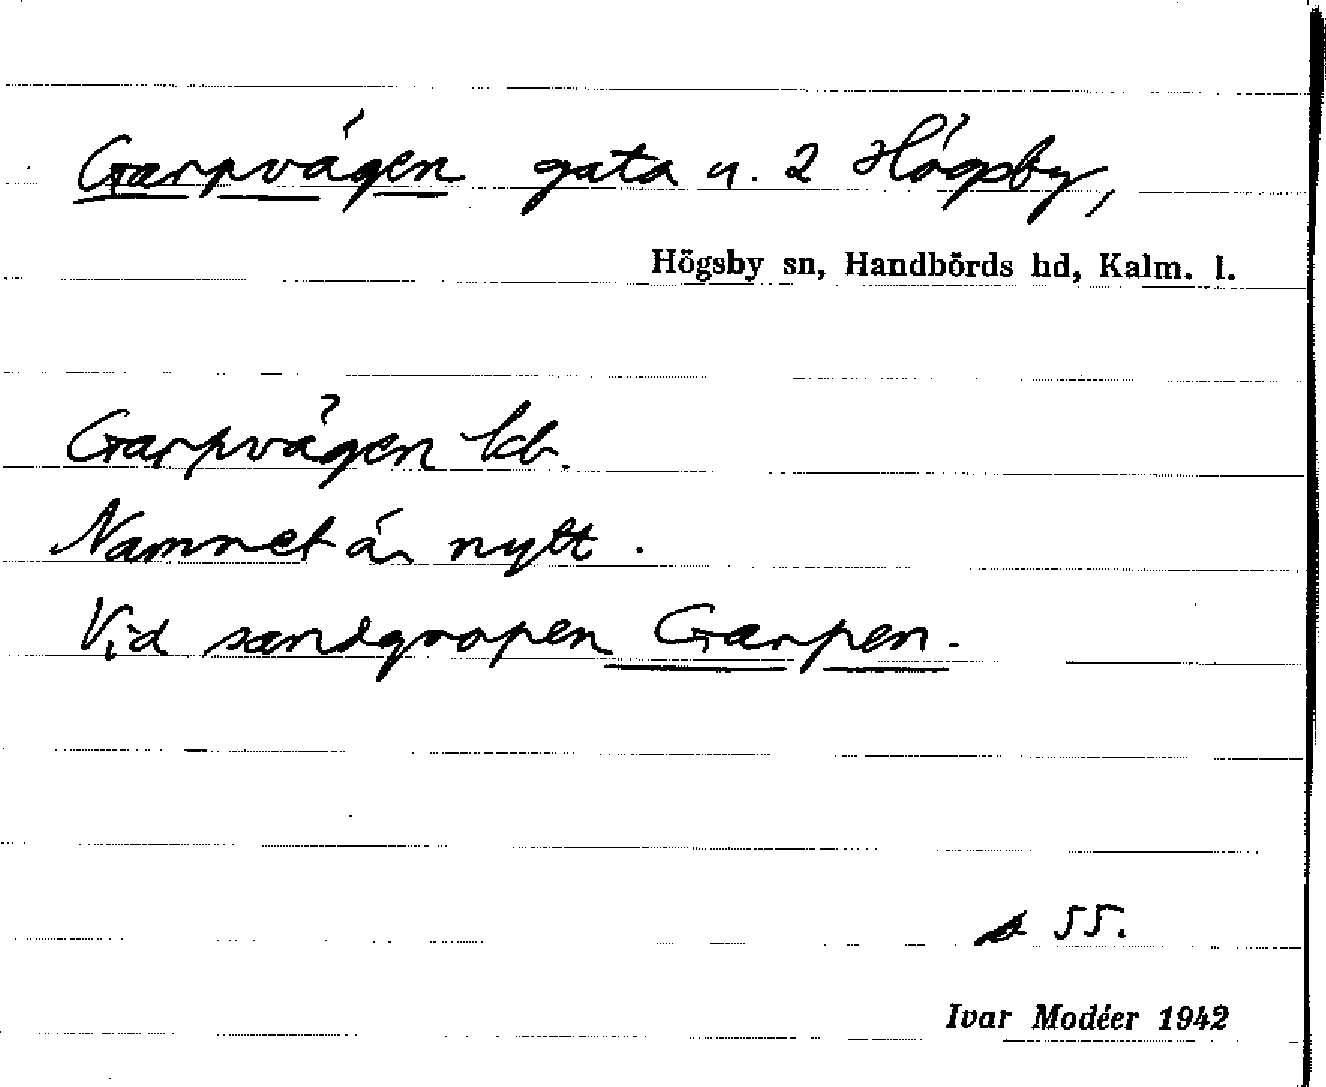 Garpvägen gata u. 2 Högsby,
Högsby sn, Handbörds hd, Kalm. l.
Garpvägen kb.
Namnet är nytt.
Vid sandgropen Garpen.
s 55.
Ivar Modéer 1942